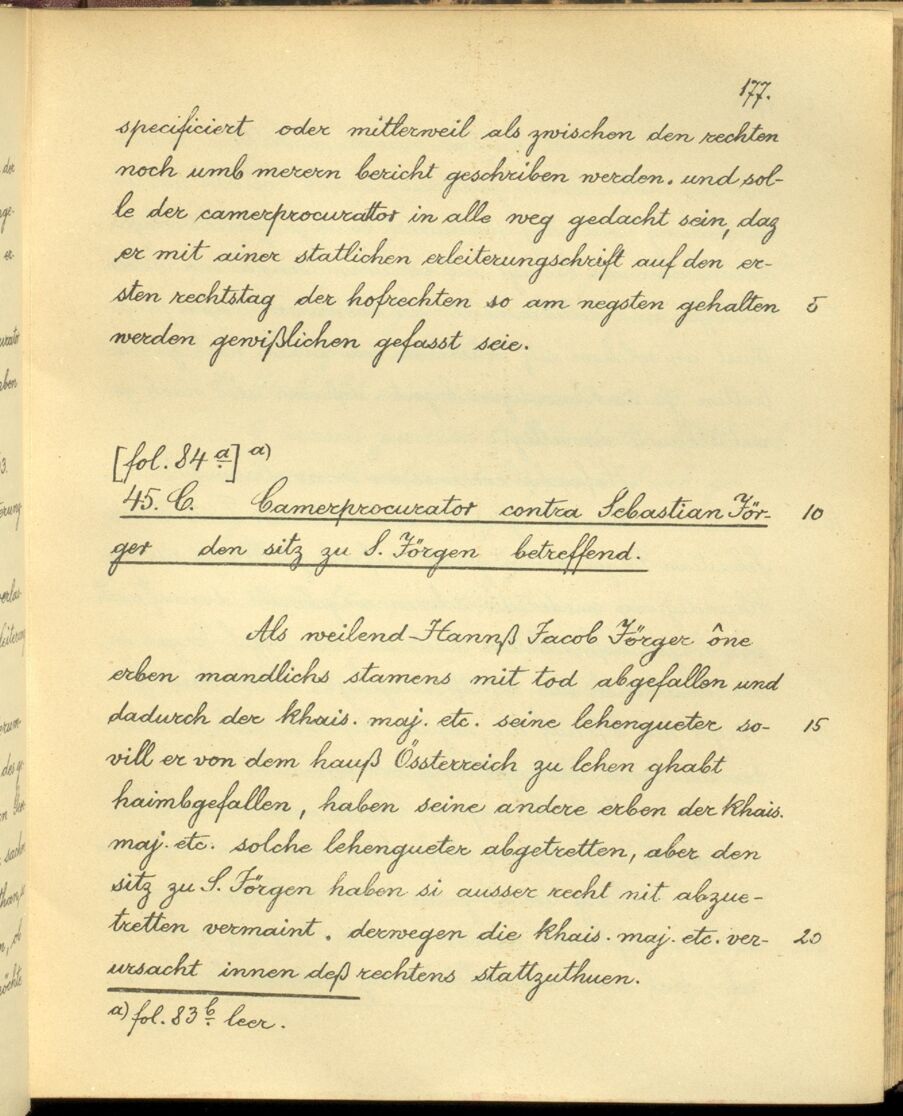 177.
specificiert oder mitlerweil als zwischen den rechten
noch umb merern bericht geschriben werden. und sol-
le der camerprocurattor in alle weg gedacht sein, daz
er mit ainer statlichen erleiterungschrift auf den er-
sten rechtstag der hofrechten so am negsten gehalten 5
werden gewißlichen gefasst seie.
[fol. 84 a] a)
45. C. Camerprocurator contra Sebastian Jör- 10
ger den sitz zu S. Jörgen betreffend.
Als weilend Hannß Jacob Jörger ône
erben mandlichs stamens mit tod abgefallen und
dadurch der khais. maj. etc. seine lehengueter so- 15
vill er von dem hauß Össterreich zu lehen ghabt
haimbgefallen, haben seine andere erben der khais.
maj. etc. solche lehengueter abgetretten, aber den
sitz zu S. Jörgen haben si ausser recht nit abzue-
tretten vermaint. derwegen die khais. maj. etc. ver- 20
ursacht innen deß rechtens stattzuthuen.
a) fol. 83 b leer.